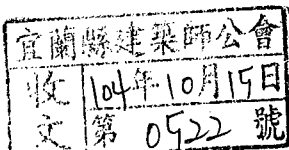 宜蘭縣建築師公會
收文 104年10月15日
第 0522 號